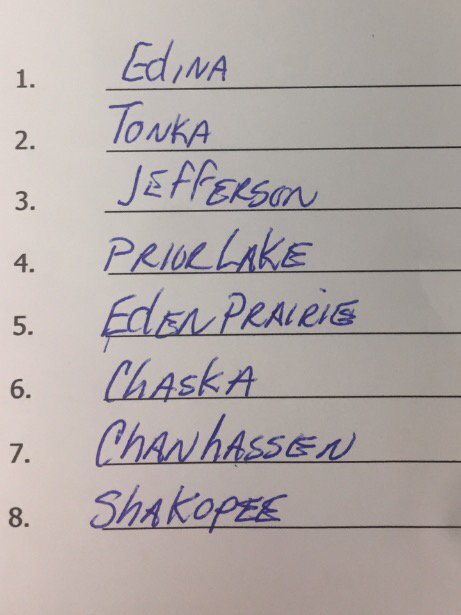 1. Edina
2. Tonka
3. Jefferson
4. Prior Lake
5. Eden Prairie
6. Chaska
7. Chanhassen
8. Shakopee